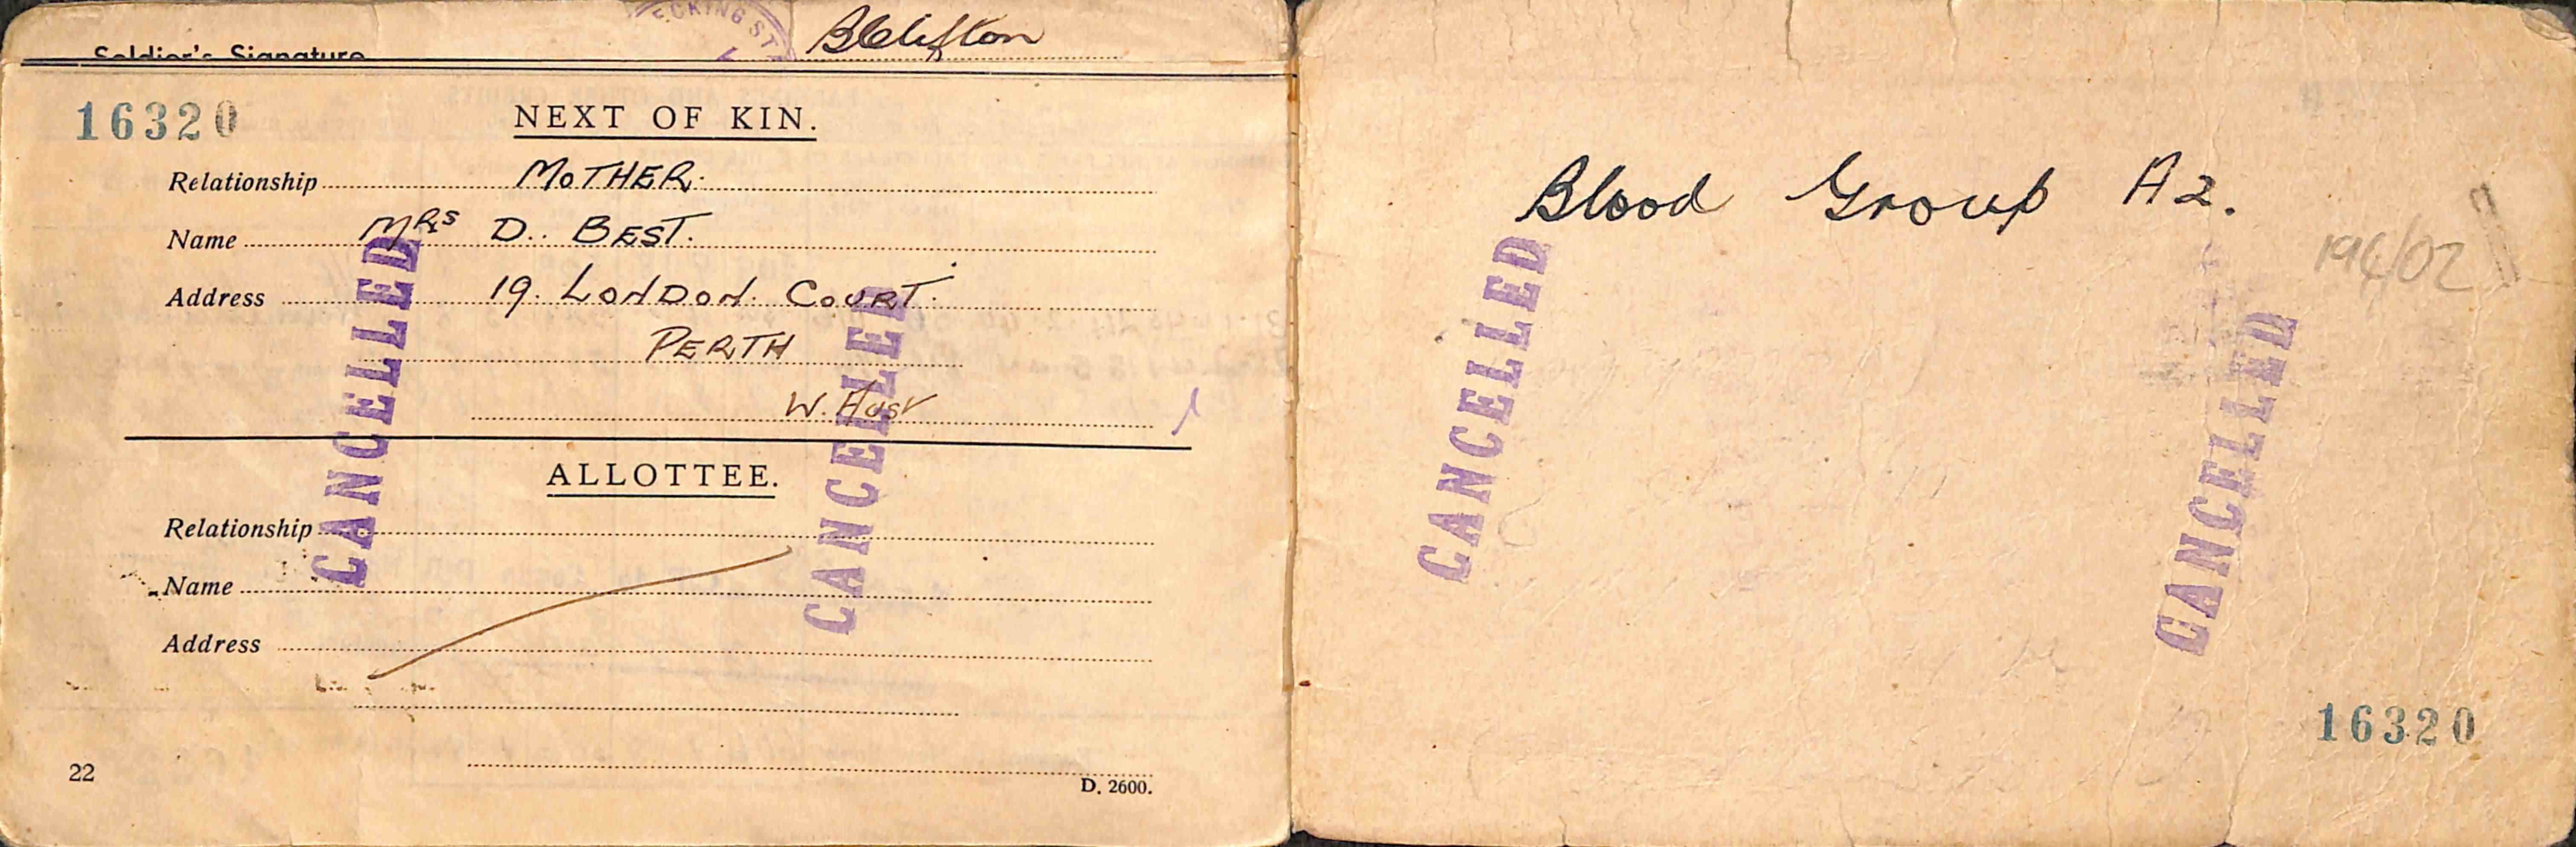 ECKING ST
Soldier's Signature B Clifton
16320 NEXT OF KIN.
Relationship MOTHER.
Name MRS D. BEST.
Address 19. LONDON. COURT.
PERTH
W. Aust
ALLOTTEE.
Relationship
Name
Address
22
D. 2600.
CANCELLED
CANCELLED
Blood Group A2.
CANCELLED
CANCELLED
16320